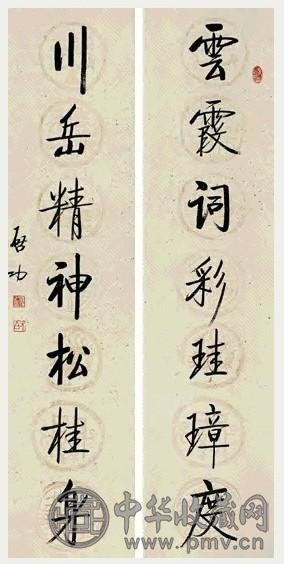 雲霞詞彩珪璋度
川岳精神松桂身
启功
中华收藏网
www.pmv.cn